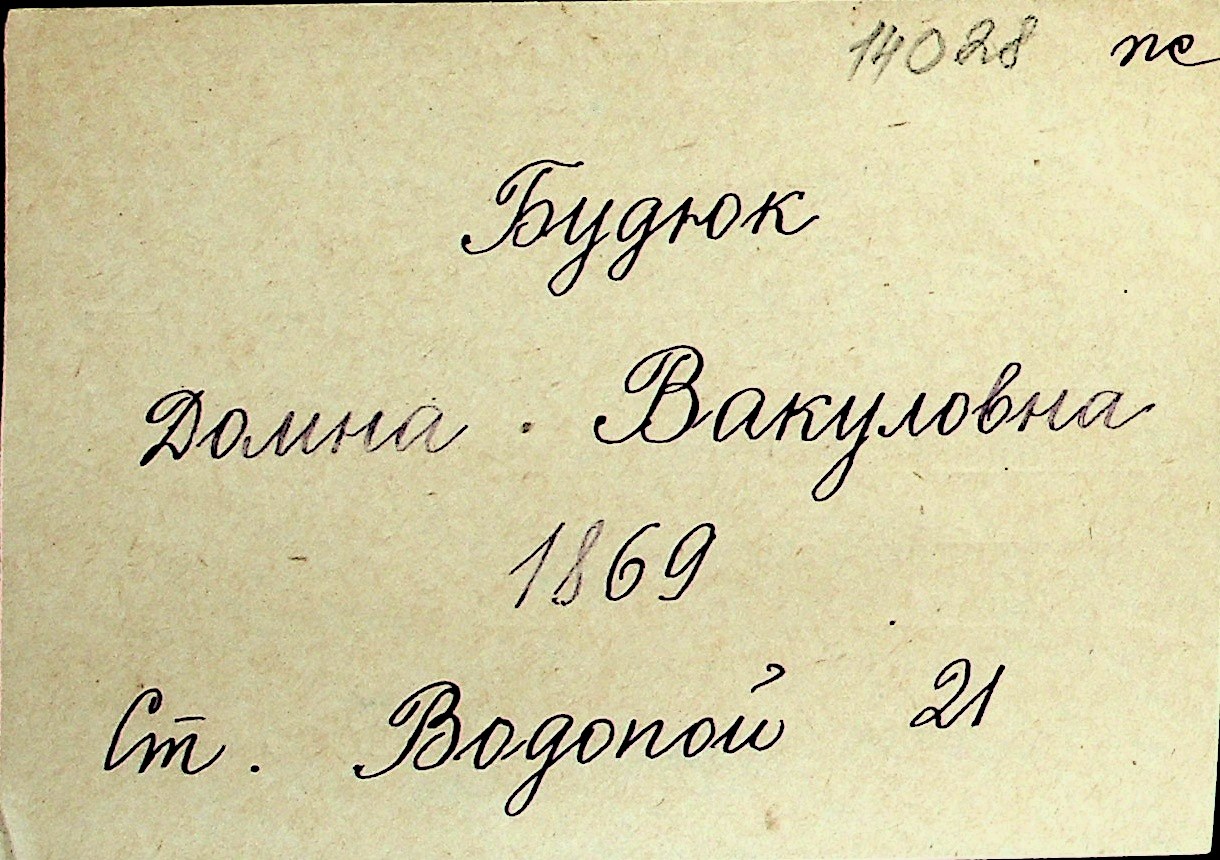 14028 пс
Будюк
Домна. Вакуловна
1869
Ст. Водопой 21